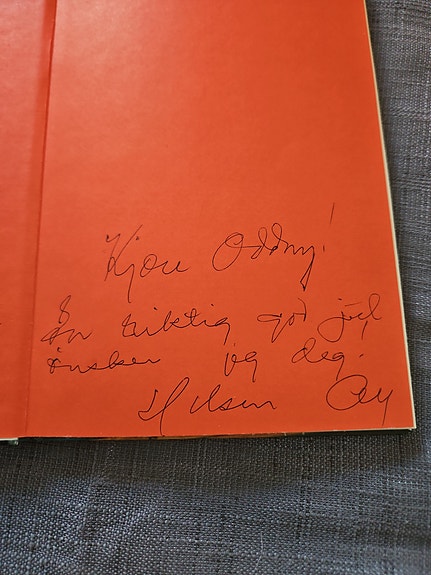 Kjære Oddny!
En riktig god jul
ønsker jeg deg.
Hilsen